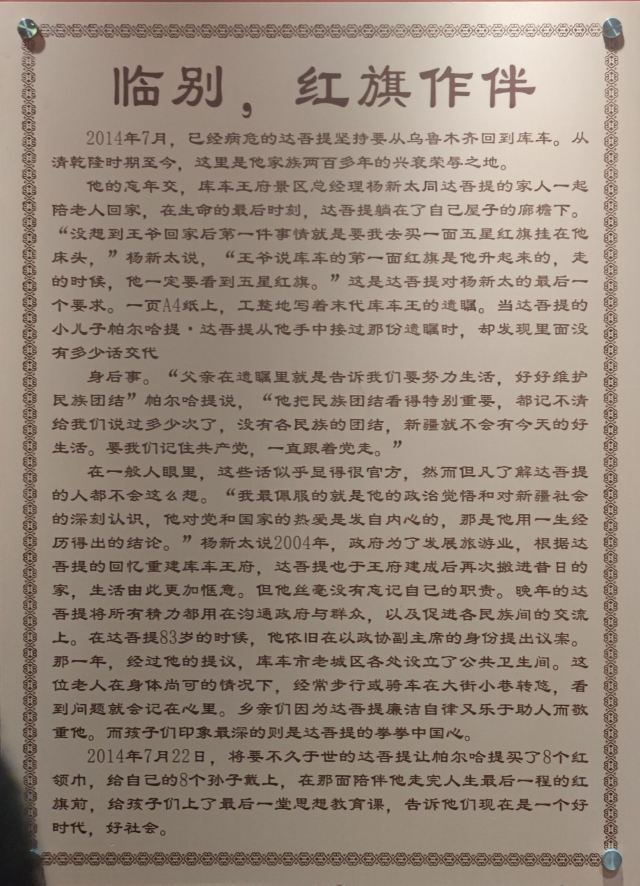 临别，红旗作伴
2014年7月，已经病危的达吾提坚持要从乌鲁木齐回到库车。从
清乾隆时期至今，这里是他家族两百多年的兴衰荣辱之地。
他的忘年交，库车王府景区总经理杨新太同达吾提的家人一起
陪老人回家，在生命的最后时刻，达吾提躺在了自己屋子的廊檐下。
“没想到王爷回家后第一件事情就是要我去买一面五星红旗挂在他
床头，”杨新太说，“王爷说库车的第一面红旗是他升起来的，走
的时候，他一定要看到五星红旗。”这是达吾提对杨新太的最后一
个要求。一页A4纸上，工整地写着末代库车王的遗瞩。当达吾提的
小儿子帕尔哈提·达吾提从他手中接过那份遗瞩时，却发现里面没
有多少话交代
身后事。“父亲在遗瞩里就是告诉我们要努力生活，好好维护
民族团结”帕尔哈提说，“他把民族团结看得特别重要，都记不清
给我们说过多少次了，没有各民族的团结，新疆就不会有今天的好
生活。要我们记住共产党，一直跟着党走。”
在一般人眼里，这些话似乎显得很官方，然而但凡了解达吾提
的人都不会这么想。“我最佩服的就是他的政治觉悟和对新疆社会
的深刻认识，他对党和国家的热爱是发自内心的，那是他用一生经
历得出的结论。”杨新太说2004年，政府为了发展旅游业，根据达
吾提的回忆重建库车王府，达吾提也于王府建成后再次搬进昔日的
家，生活由此更加惬意。但他丝毫没有忘记自己的职责。晚年的达
吾提将所有精力都用在沟通政府与群众，以及促进各民族间的交流
上。在达吾提83岁的时候，他依旧在以政协副主席的身份提出议案。
那一年，经过他的提议，库车市老城区各处设立了公共卫生间。这
位老人在身体尚可的情况下，经常步行或骑车在大街小巷转悠，看
到问题就会记在心里。乡亲们因为达吾提廉洁自律又乐于助人而敬
重他。而孩子们印象最深的则是达吾提的拳拳中国心。
2014年7月22日，将要不久于世的达吾提让帕尔哈提买了8个红
领巾，给自己的8个孙子戴上，在那面陪伴他走完人生最后一程的红
旗前，给孩子们上了最后一堂思想教育课，告诉他们现在是一个好
时代，好社会。